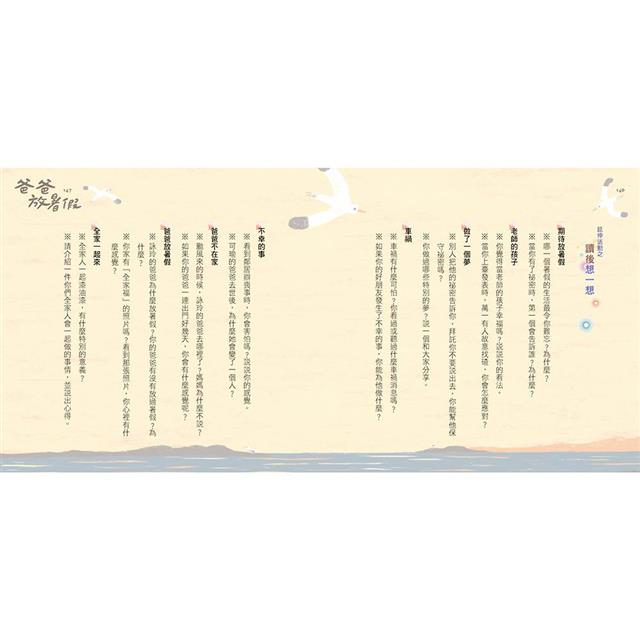 146
延伸活動之
讀後想一想
期待放暑假
※ 哪一個暑假的生活最令你難忘？為什麼？
※ 當你有了祕密時，第一個會告訴誰？為什麼？
老師的孩子
※ 你覺得當老師的孩子幸福嗎？說說你的看法。
※ 當你上臺發表時，萬一有人故意找碴，你會怎麼應對？
做了一個夢
※ 別人把他的祕密告訴你，拜託你不要說出去，你能幫他保
守祕密嗎？
※ 你做過哪些特別的夢？說一個和大家分享。
車禍
※ 車禍有什麼可怕？你看過或聽過什麼車禍消息嗎？
※ 如果你的好朋友發生了不幸的事，你能為他做什麼？
不幸的事
※ 看到鄰居辦喪事時，你會害怕嗎？說說你的感覺。
※ 可瑜的爸爸去世後，為什麼她會變了一個人？
爸爸不在家
※ 颱風來的時候，詠玲的爸爸去哪裡了？媽媽為什麼不說？
※ 如果你的爸爸一連出門好幾天，你會有什麼感覺呢？
爸爸放暑假
※ 詠玲的爸爸為什麼放暑假？你的爸爸有沒有放過暑假？為
什麼？
※ 你家有「全家福」的照片嗎？看到那張照片，你心裡有什
麼感覺？
全家一起來
※ 全家人一起漆油漆，有什麼特別的意義？
※ 請介紹一件你們全家人會一起做的事情，並說出心得。
147
爸爸
放暑假